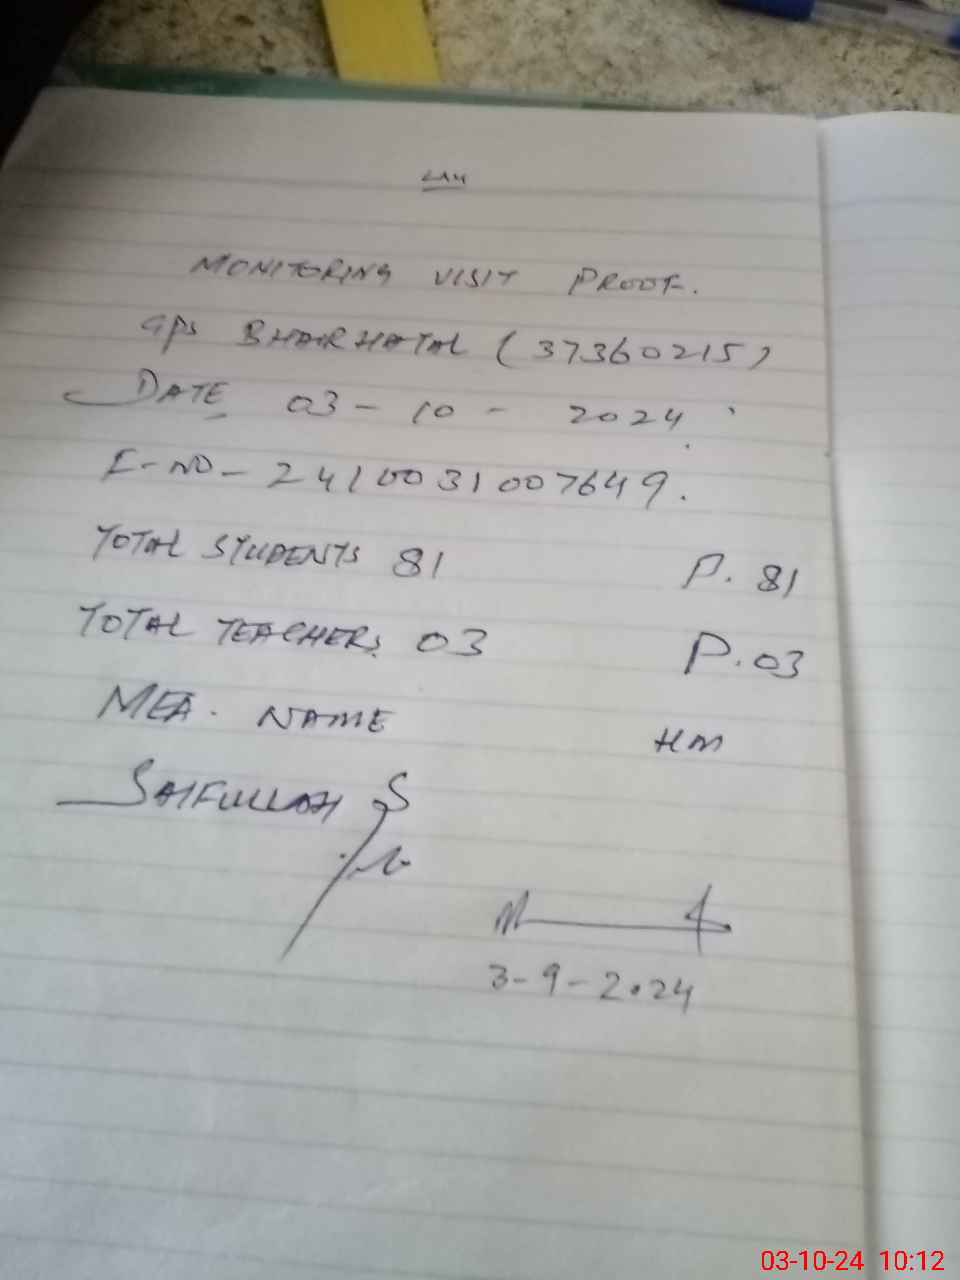 MONITORING VISIT PROOF.
GPS BHAIRHATAL (37360215)
DATE 03-10-2024
E-NO-2410031007649.
TOTAL STUDENTS 81 P. 81
TOTAL TEACHERS 03 P. 03
MEA. NAME HM
SAIFULLAH
3-9-2024
03-10-24 10:12